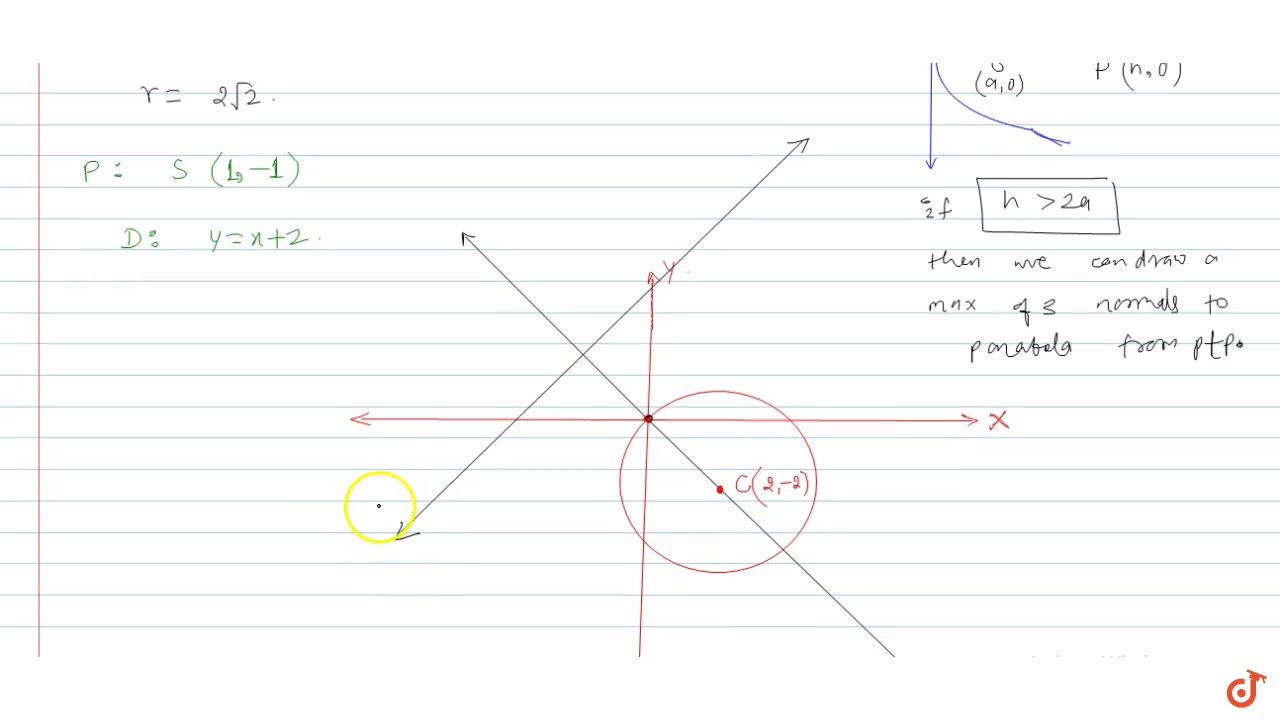 r = 2√2.
P : S (1, -1)
D : y = x+2.
Y.
X
C(2,-2)
(a,0)
P (h,0)
if h >2a
then we can draw a
max of 3 normals to
parabola from pt P.